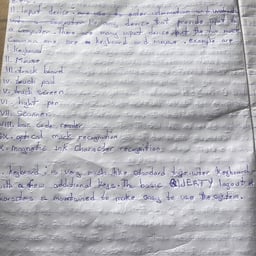 Input device
Computer is device that provide input to
a computer. There are many input device but the two most
are a keyboard and mouse. Example are
I. Keyboard
II. Mouse
III. track board
IV. touch pad
V. touch screen
VI. light pen
VII. Scanner
VIII. bar code reader
IX. optical mark recognition
X. magnetic ink character recognition
Keyboard is very much like standard typewriter keyboard
with a few additional keys. The basic QWERTY layout of
is maintained to make easy to use the system.